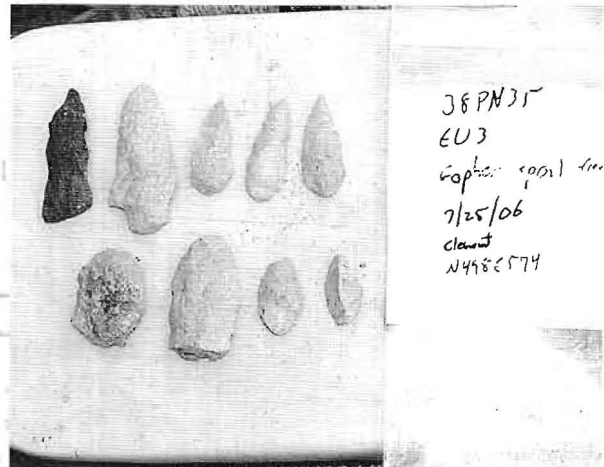 38PN35
EU3
Gopher spoil
7/25/06
Clement
N498E574